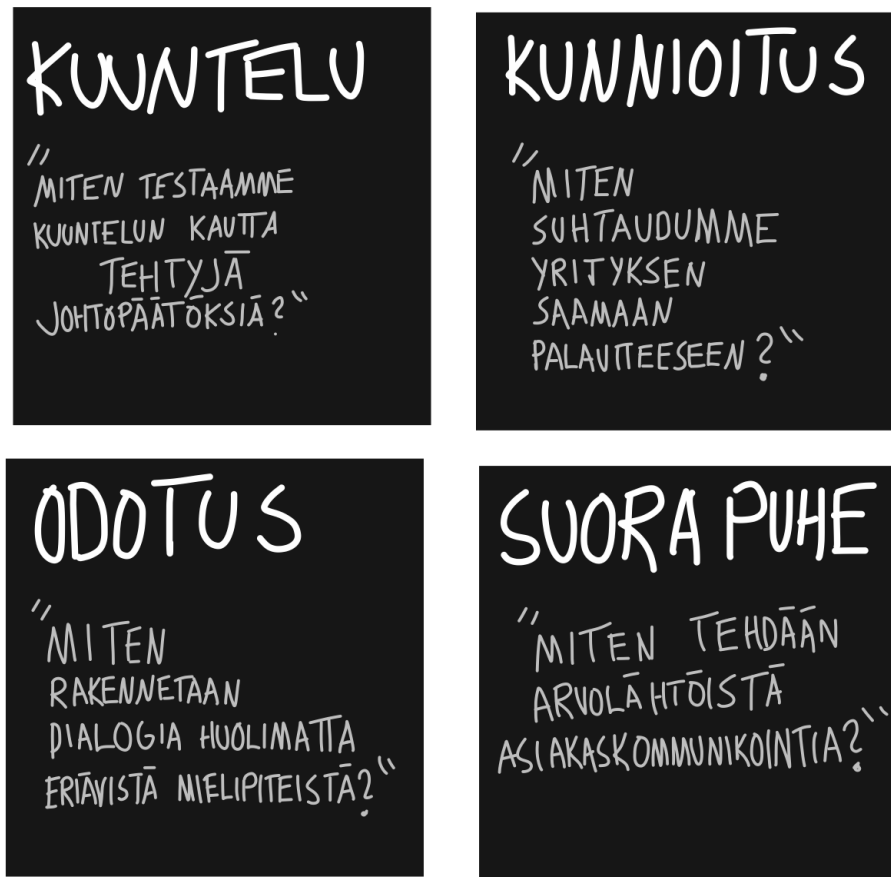 KUUNTELU
"MITEN TESTAAMME
KUUNTELUN KAUTTA
TEHTYJÄ
JOHTOPÄÄTÖKSIÄ?"
KUNNIOITUS
"MITEN
SUHTAUDUMME
YRITYKSEN
SAAMAAN
PALAUTTEESEEN?"
ODOTUS
"MITEN
RAKENNETAAN
DIALOGIA HUOLIMATTA
ERIÄVISTÄ MIELIPITEISTÄ?"
SUORA PUHE
"MITEN TEHDÄÄN
ARVOLÄHTÖISTÄ
ASIAKASKOMMUNIKOINTIA?"